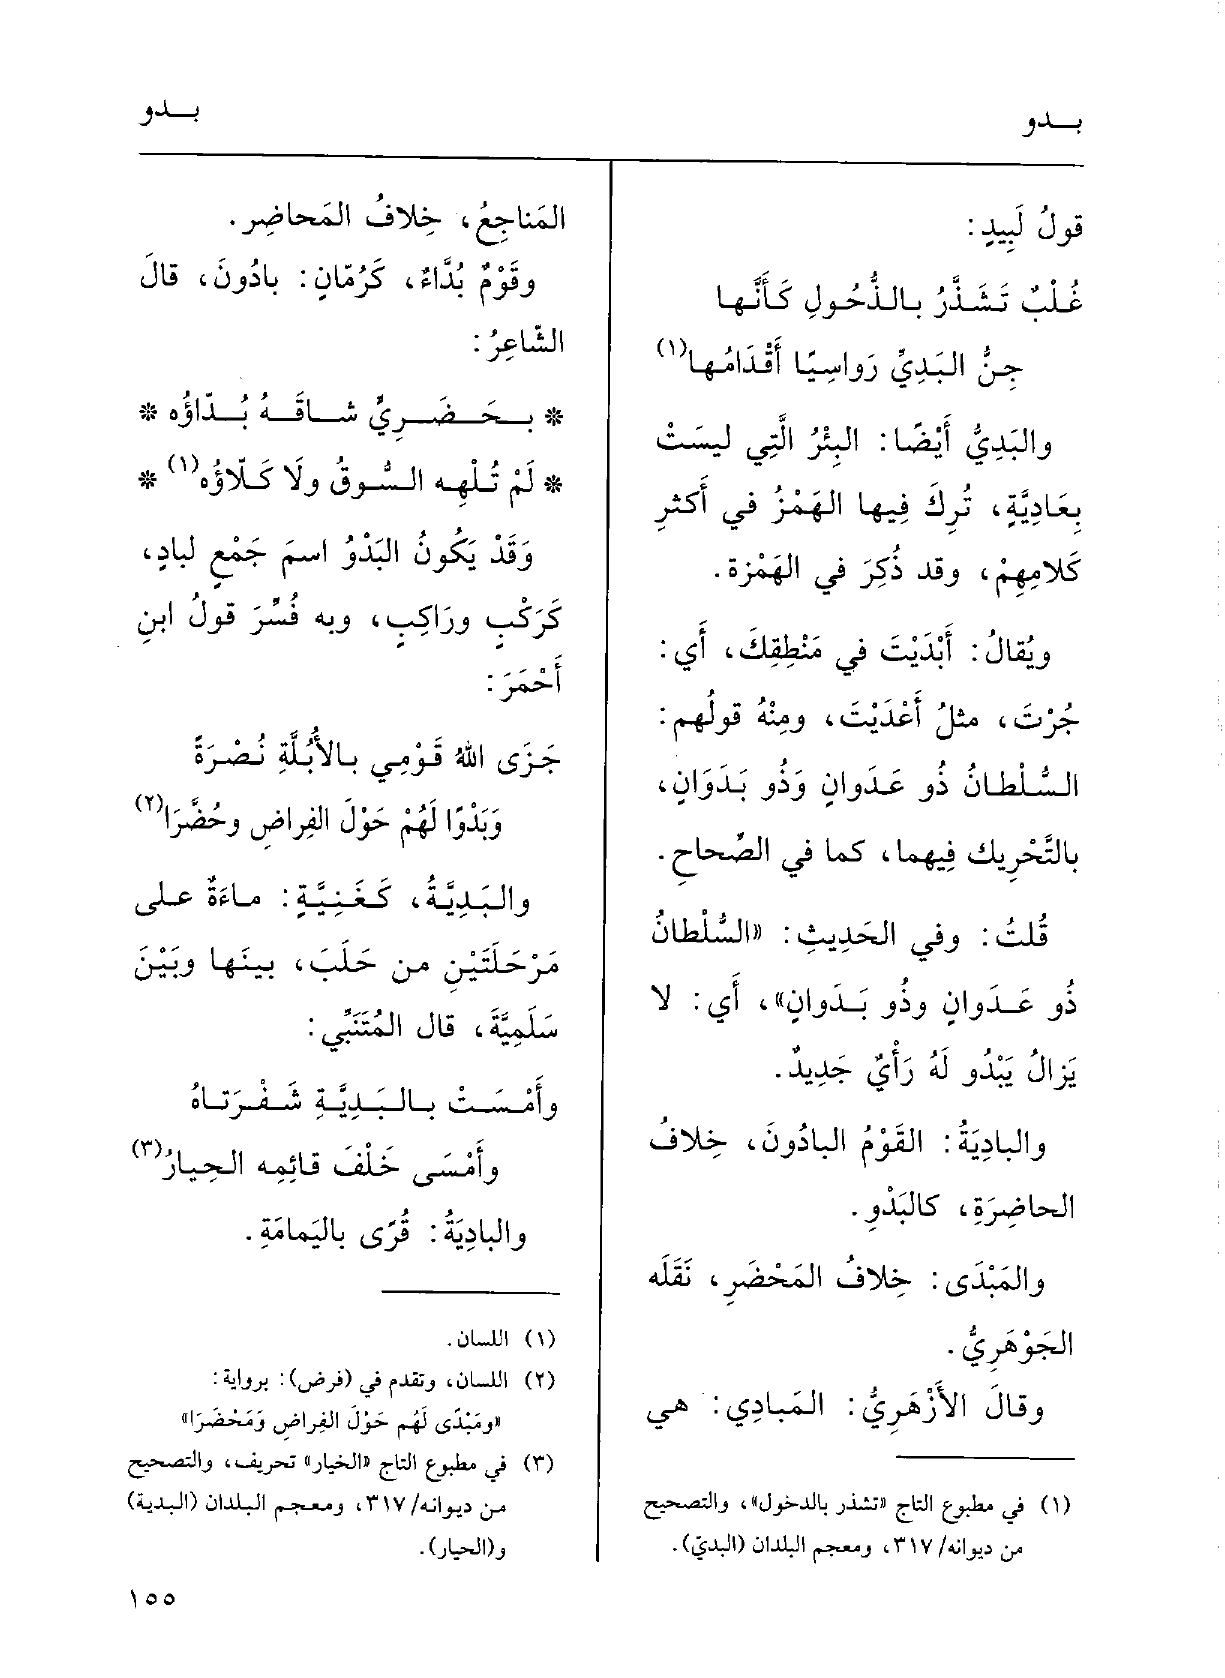 بـدو
بـدو
قولُ لَبِيدٍ:
غُلْبٌ تَشَذَّرُ بـالـذُّحُـولِ كَـأنَّـهـا
جِـنُّ البَـدِيِّ رَواسِيًا أَقْدَامُـها(١)
والبَدِيُّ أَيْضًا: البِئْرُ الَّتِي ليسَتْ
بِعَادِيَّةٍ، تُرِكَ فِيها الهَمْزُ في أَكثرِ
كَلامِهِمْ، وقد ذُكِرَ في الهَمْزة.
ويُقالُ: أَبْدَيْتَ في مَنْطِقِكَ، أَي:
جُرْتَ، مثلُ أَعْدَيْتَ، ومِنْهُ قولُهم:
السُّلْطانُ ذُو عَدَوانٍ وَذُو بَدَوَانٍ،
بالتَّحْرِيك فِيهما، كما في الصِّحاحِ.
قُلتُ: وفي الحَدِيثِ: «السُّلْطانُ
ذُو عَـدَوانٍ وذُو بَـدَوانٍ»، أَي: لا
يَزالُ يَبْدُو لَهُ رَأْيٌ جَدِيدٌ.
والبادِيَةُ: القَوْمُ البادُونَ، خِلافُ
الحاضِرَةِ، كالبَدْوِ.
والمَبْدَى: خِلافُ المَحْضَرِ، نَقَلَه
الجَوْهَرِيُّ.
وقالَ الأَزْهَرِيُّ: المَبادِي: هي
(١) في مطبوع التاج «تشذر بالدخول»، والتصحيح
من ديوانه/٣١٧، ومعجم البلدان (البديّ).
المَناجِعُ، خِلافُ المَحاضِر.
وقَوْمٌ بُدَّاءٌ، كَرُمّانٍ: بادُونَ، قالَ
الشّاعِرُ:
* بـحَـضَـرِيٍّ شـاقَـهُ بُـدّاؤُه *
* لَمْ تُلْهِه السُّوقُ ولَا كَلّاؤُه(١) *
وَقَدْ يَكُونُ البَدْوُ اسمَ جَمْعٍ لبادٍ،
كَرَكْبٍ ورَاكِبٍ، وبه فُسِّرَ قولُ ابنِ
أَحْمَرَ:
جَـزَى اللهُ قَـوْمِي بـالأُبُلَّةِ نُـصْـرَةً
وَبَدْوًا لَهُمْ حَوْلَ الفِراضِ وحُضَّرَا(٢)
والـبَـدِيَّـةُ، كَـغَـنِـيَّـةٍ: مـاءَةٌ عـلى
مَرْحَلَتَيْنِ من حَلَبَ، بينَها وبَيْنَ
سَلَمِيَّةَ، قال المُتَنَبِّي:
وأَمْـسَـتْ بـالـبَـدِيَّـةِ شَـفْـرَتـاهُ
وأَمْسَى خَلْفَ قائِمِه الحِيارُ(٣)
والبادِيَةُ: قُرًى باليَمامَةِ.
(١) اللسان.
(٢) اللسان، وتقدم في (فرض): برواية:
«ومَبْدًى لَهُم حَوْلَ الفِراضِ وَمَحْضَرَا»
(٣) في مطبوع التاج «الخيار» تحريف، والتصحيح
من ديوانه/٣١٧، ومعجم البلدان (البدية)
و(الحيار).
١٥٥